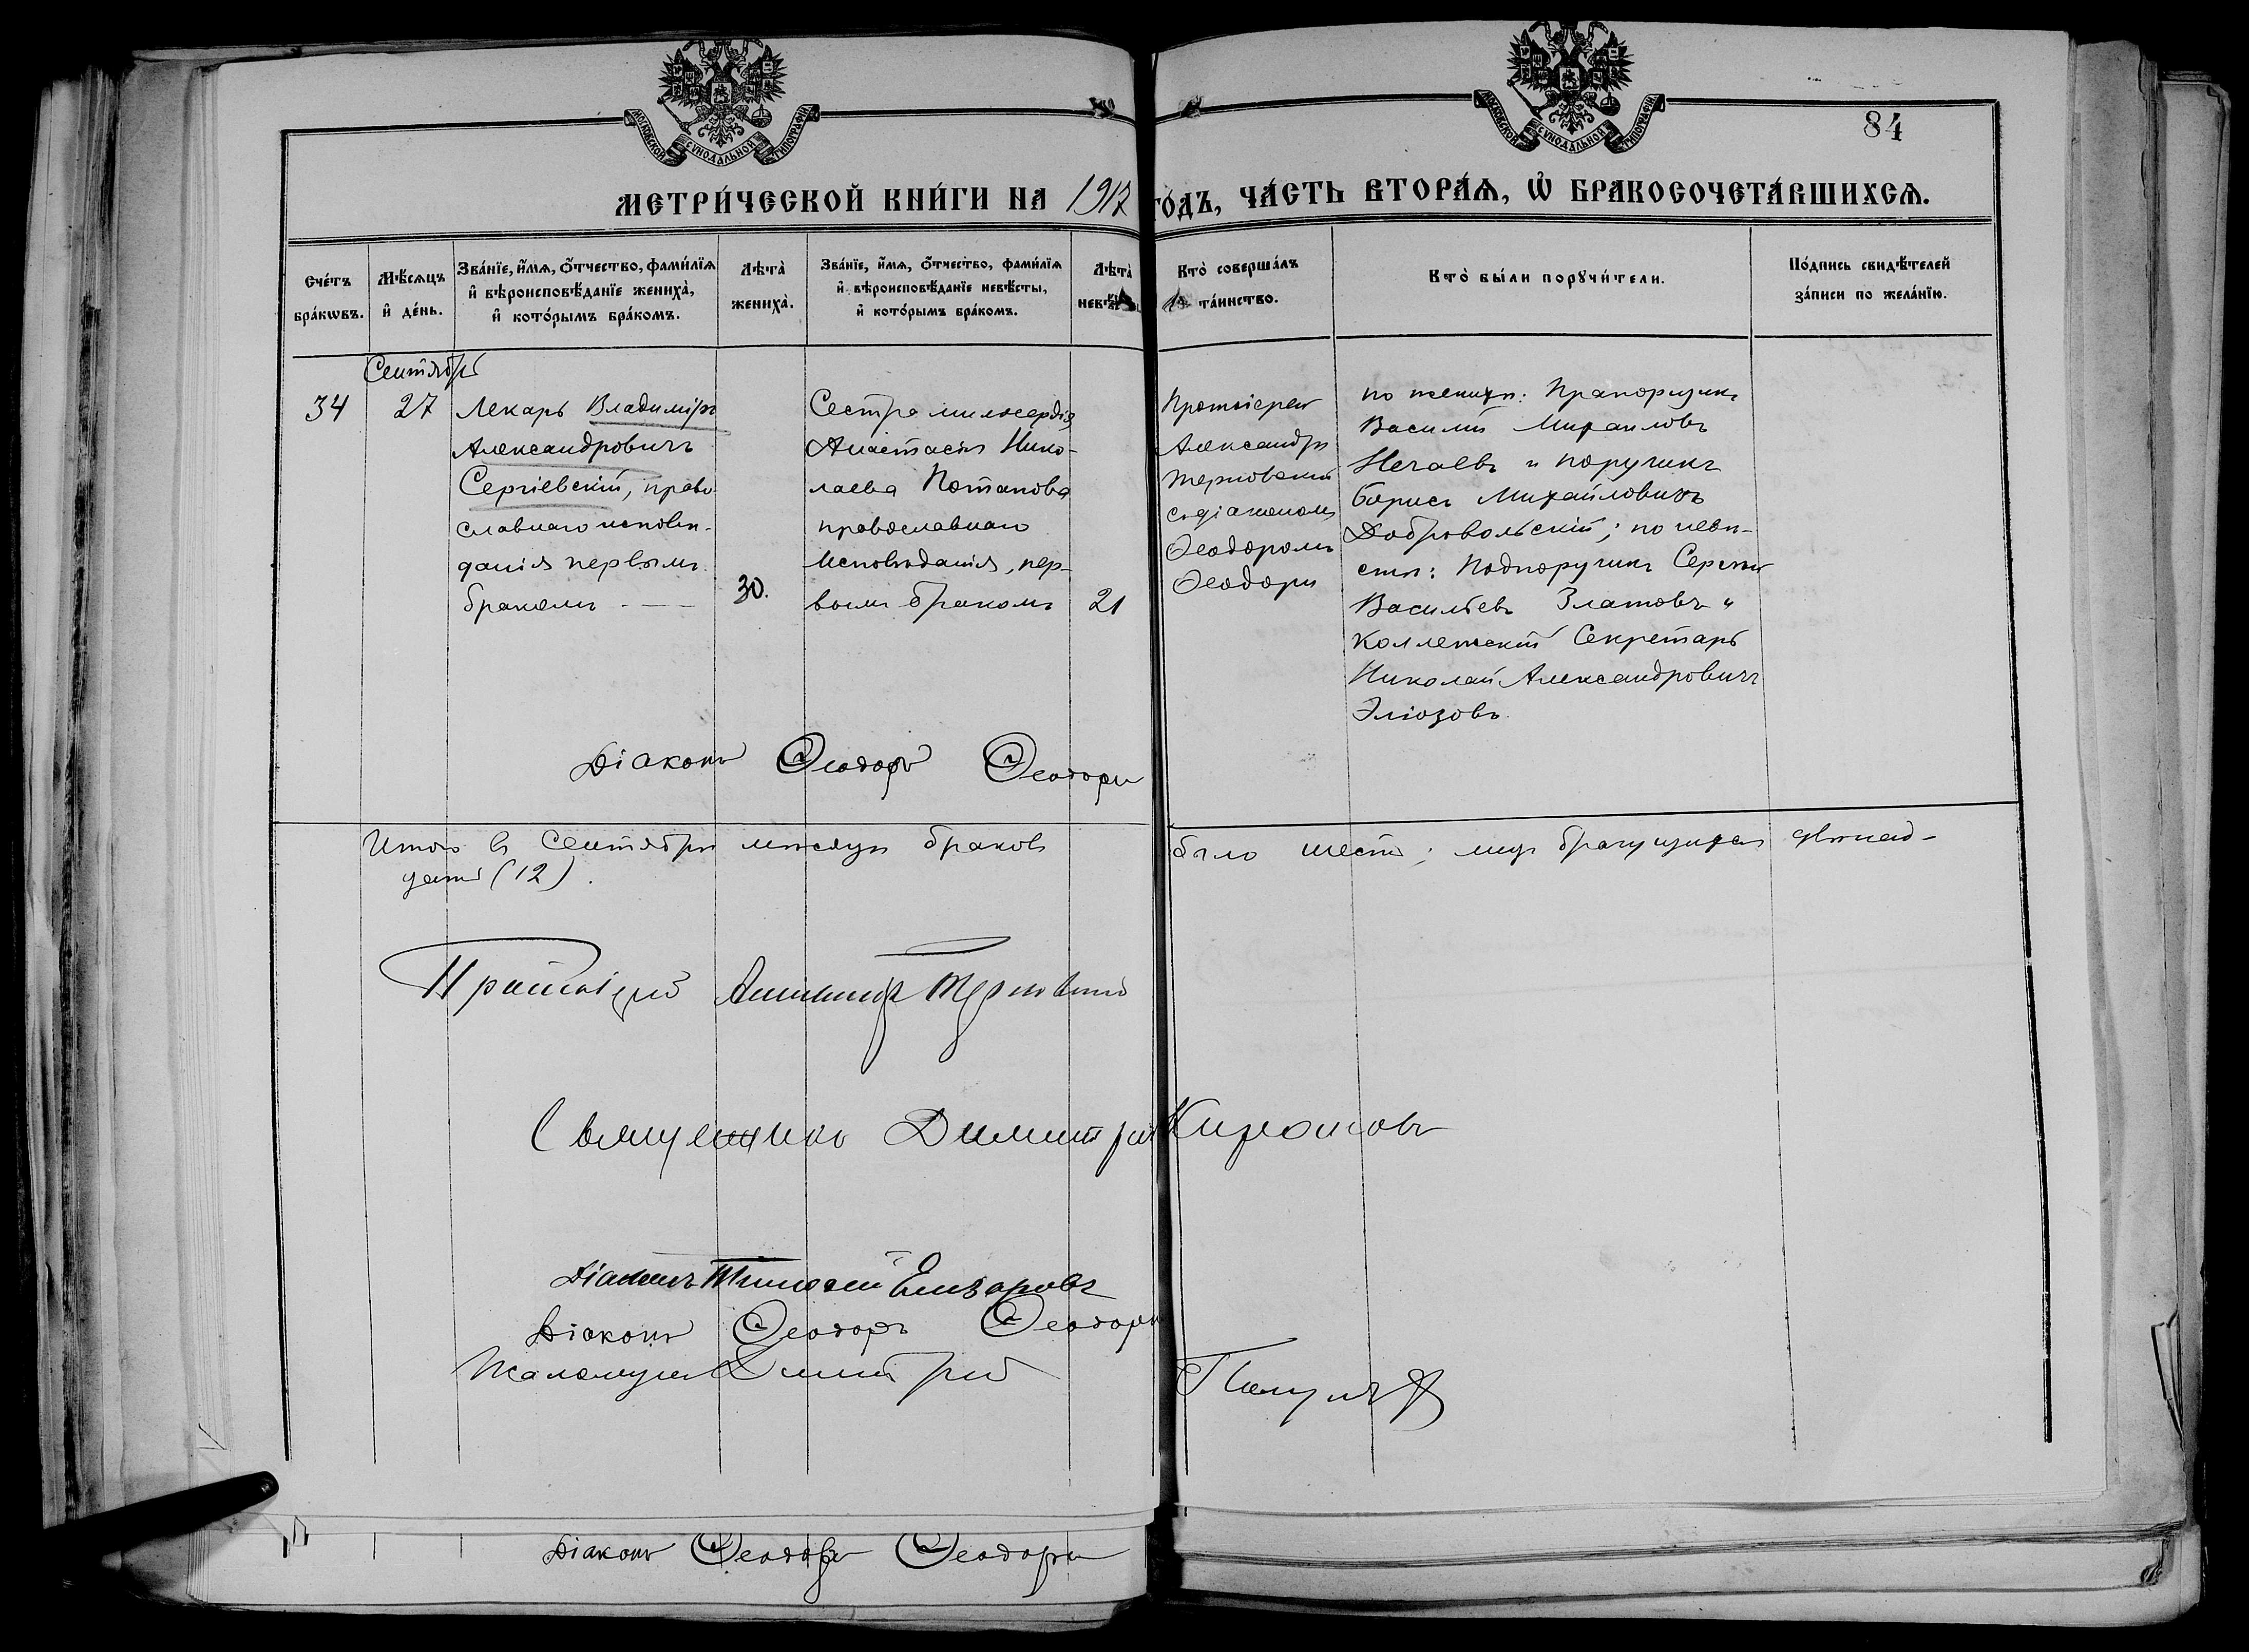 МОСКОВСКОЙ СУНОДАЛЬНОЙ ТИПОГРАФІИ
МОСКОВСКОЙ СУНОДАЛЬНОЙ ТИПОГРАФІИ
84
МЕТРИ́ЧЕСКОЙ КНИ́ГИ НА 1917 ГО́ДЪ, ЧА́СТЬ ВТОРА́Ѧ, Ѽ БРАКОСОЧЕТА́ВШИХСѦ.
Сче́тъ
бра́кѡвъ.
Мѣ́сѧцъ
и҆ де́нь.
Зва́нїе, и҆́мѧ, ѻ҆́тчество, фами́лїѧ
и҆ вѣроисповѣ́данїе жениха̀,
и҆ кото́рымъ бра́комъ.
Лѣта̀
жениха̀.
Зва́нїе, и҆́мѧ, ѻ҆́тчество, фами́лїѧ
и҆ вѣроисповѣ́данїе невѣ́сты,
и҆ кото́рымъ бра́комъ.
Лѣта̀
Кто̀ соверша́лъ
та́инство.
Кто̀ бы́ли порꙋчи́тели.
По́дпись свидѣ́телей
за́писи по жела́нїю.
Сентябрь
34
27
Лекарь Владимiръ
Александровичъ
Сергіевскій, право
славнаго исповѣ-
данія первымъ
бракомъ
30.
Сестра милосердія
Анастасія Нико-
лаева Потапова
православнаго
исповѣданія, пер-
вымъ бракомъ
21
Протоіерей
Александръ
Терновскій
съ діакономъ
Ѳеодоромъ
Ѳеодори
по женихѣ: Прапорщикъ
Василій Михаиловъ
Нечаевъ и поручикъ
Борисъ Михайловичъ
Добровольскій; по невѣ-
стѣ: Подпоручикъ Сергѣй
Васильевъ Златовъ и
Коллежскій Секретарь
Николай Александровичъ
Эліозовъ
Діаконъ Ѳеодоръ Ѳеодори
Итого въ Сентябрѣ мѣсяцѣ браковъ было шесть; лицъ брачущихся двѣнад-
цать (12).
Протоіерей Александръ Терновскій
Священникъ Димитрій
Діаконъ Тимоѳей Елизаровъ
Діаконъ Ѳеодоръ Ѳеодори
Псаломщикъ Димитрій
Діаконъ Ѳеодоръ Ѳеодори